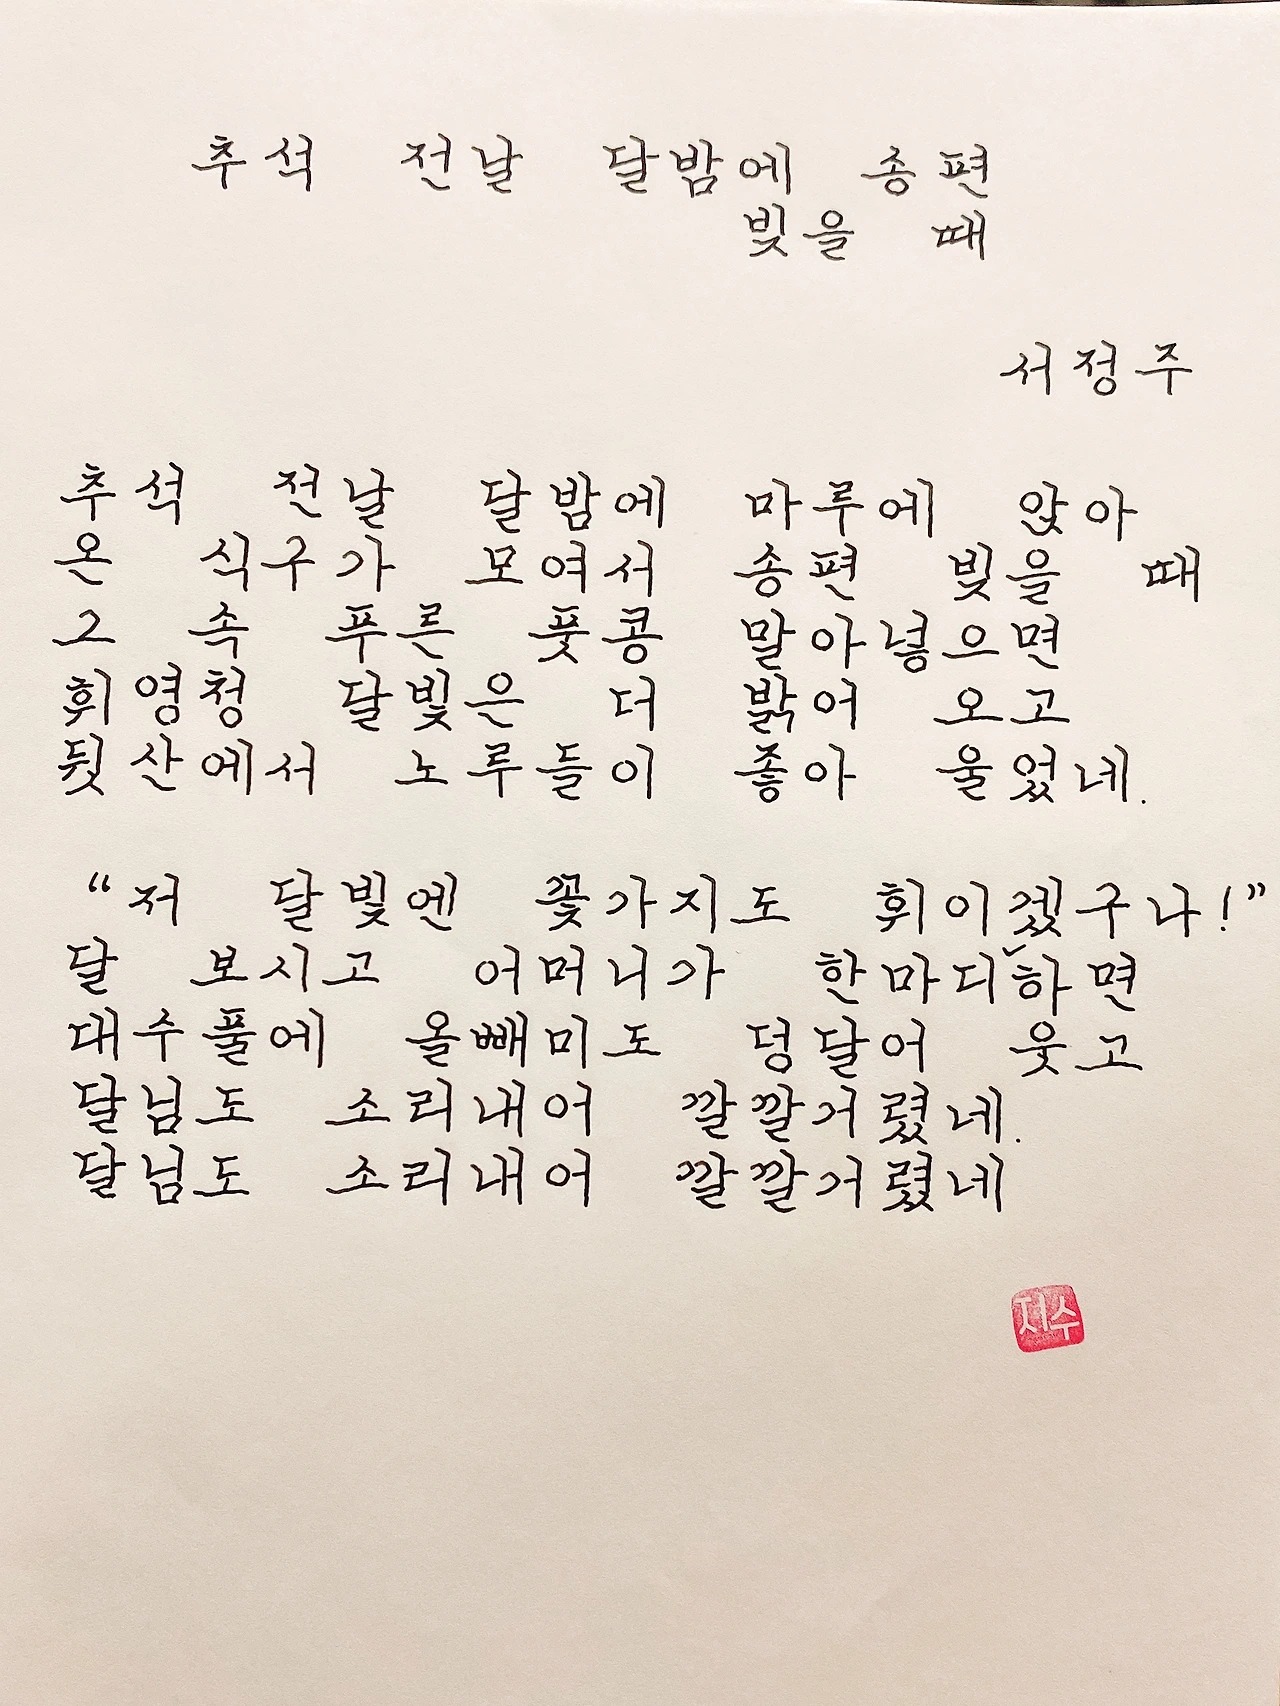 추석 전날 달밤에 송편
빚을 때
서정주
추석 전날 달밤에 마루에 앉아
온 식구가 모여서 송편 빚을 때
그 속 푸른 풋콩 말아넣으면
휘영청 달빛은 더 밝어 오고
뒷산에서 노루들이 좋아 울었네.
“저 달빛엔 꽃가지도 휘이겠구나!”
달 보시고 어머니가 한마디ˇ하면
대수풀에 올빼미도 덩달어 웃고
달님도 소리내어 깔깔거렸네.
달님도 소리내어 깔깔거렸네
저수